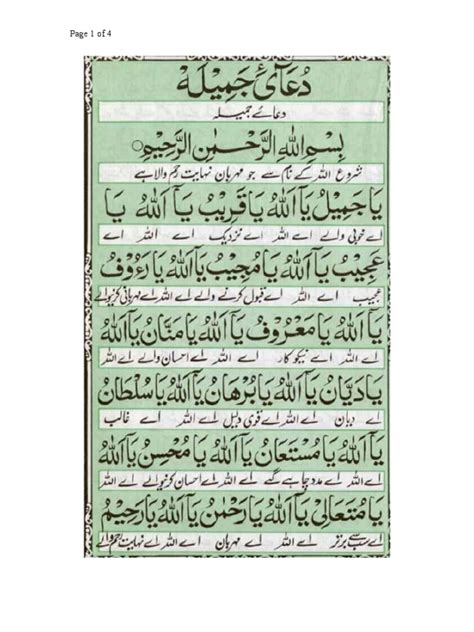 Page 1 of 4
دُعَآئے جَمِیْلَہ
دعائے جمیلہ
بِسْمِ اللهِ الرَّحْمٰنِ الرَّحِيْمِ
شروع اللہ کے نام سے جو مہربان نہایت رحم والا ہے
يَا جَمِيْلُ يَآ اَللهُ يَا قَرِيْبُ يَآ اَللهُ يَا
اے خوبی والے اے اللہ اے نزدیک اے اللہ اے
عَجِيْبُ يَآ اَللهُ يَا مُجِيْبُ يَآ اَللهُ يَا رَءُوْفُ
عجیب اے اللہ اے قبول کرنے والے اے اللہ اے مہربانی کرنیوالے
يَآ اَللهُ يَا مَعْرُوْفُ يَآ اَللهُ يَا مَنَّانُ يَآ اَللهُ
اے اللہ اے نیکو کار اے اللہ اے احسان والے اے اللہ
يَا دَيَّانُ يَآ اَللهُ يَا بُرْهَانُ يَآ اَللهُ يَا سُلْطَانُ
اے دیان اے اللہ اے قوی دلیل اے اللہ اے غالب
يَآ اَللهُ يَا مُسْتَعَانُ يَآ اَللهُ يَا مُحْسِنُ يَآ اَللهُ
اے اللہ اے مدد چاہے گئے اے اللہ اے احسان کرنیوالے اے اللہ
يَا مُتَعَالِيْ يَآ اَللهُ يَا رَحْمٰنُ يَآ اَللهُ يَا رَحِيْمُ
اے سب سے برتر اے اللہ اے مہربان اے اللہ اے نہایت رحم والے